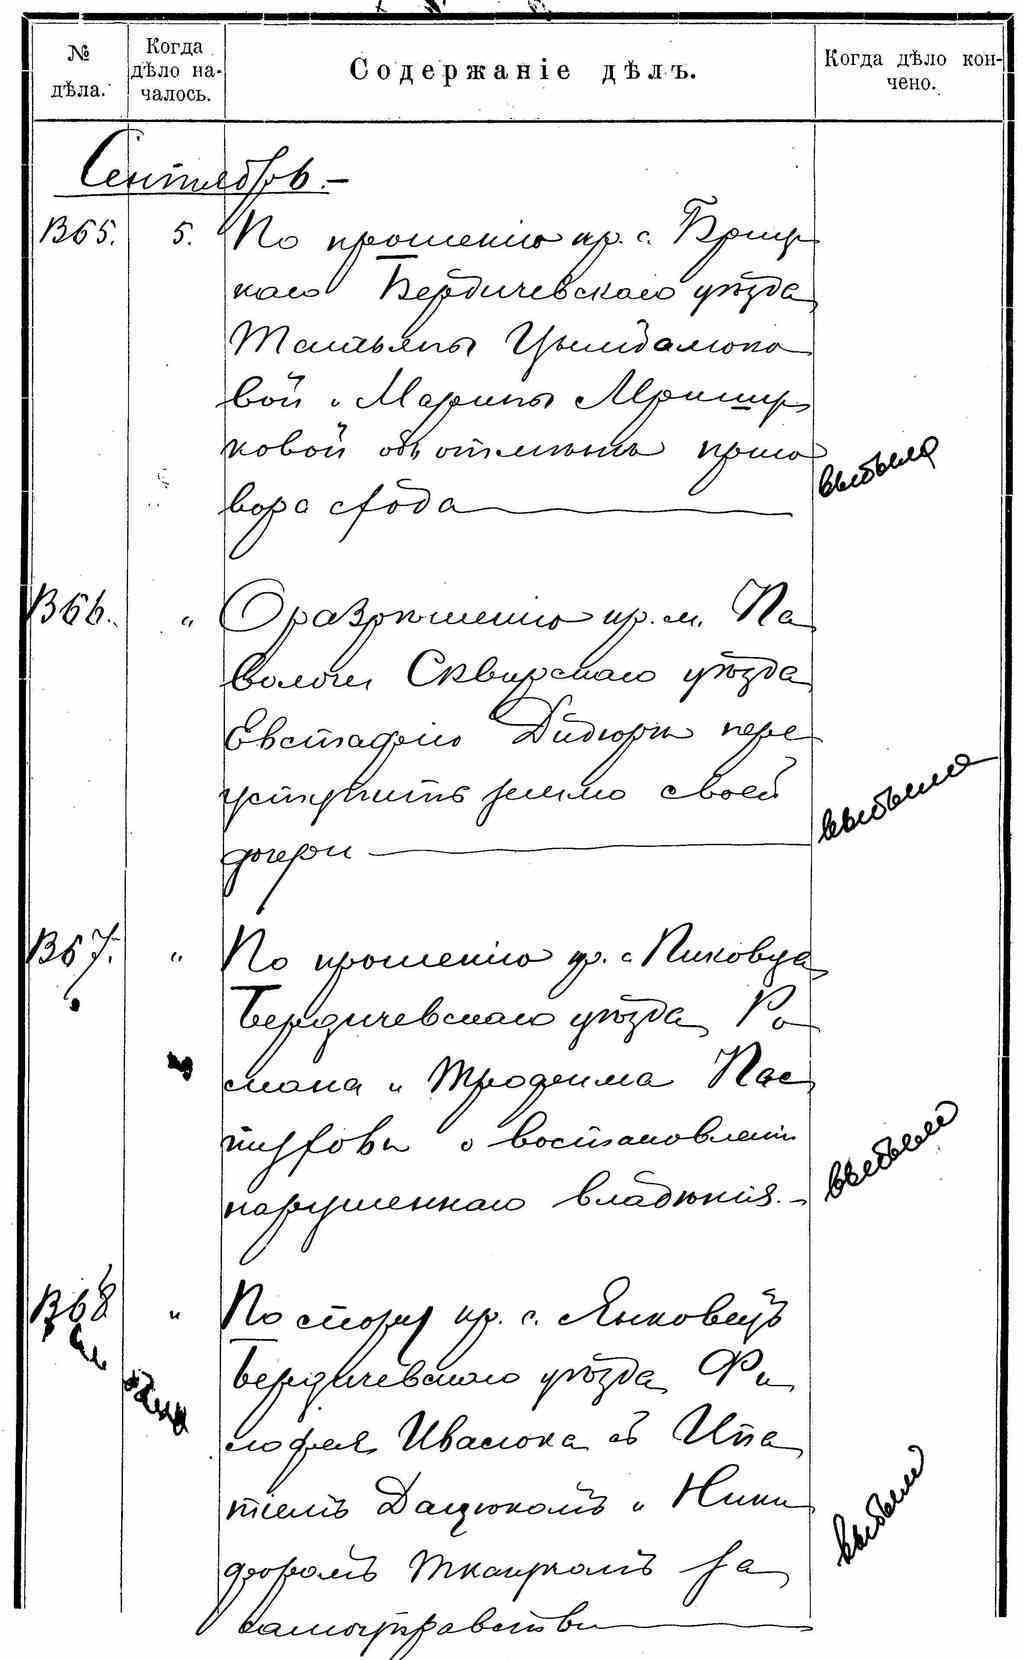 № дѣла.
Когда дѣло на-чалось.
Содержаніе дѣлъ.
Когда дѣло кон-чено.
Сентябрь.-
365. 5. По прошенію кр. с. Бриц
каго Бердичевскаго уѣзда
Татьяны Цымбалюко
вой и Марины
ковой объ отмѣнѣ приго
вора схода
366. " О разрѣшеніи кр. м. Па
волочи Сквирскаго уѣзда
Евстафію Дидюрѣ пере
уступить землю своей
дочери
367. " По прошенію кр. с. Пиковца
Бердичевскаго уѣзда Ро
мана и Трофима Пас
туховы о востановленіи
нарушеннаго владѣнія.-
368 " По спору кр. с. Янковецъ
Бердичевскаго уѣзда Фи
лофея Ивасюка съ Ипа
тіемъ Дацюкомъ и Ники
форомъ Ткачукомъ за
самоуправство